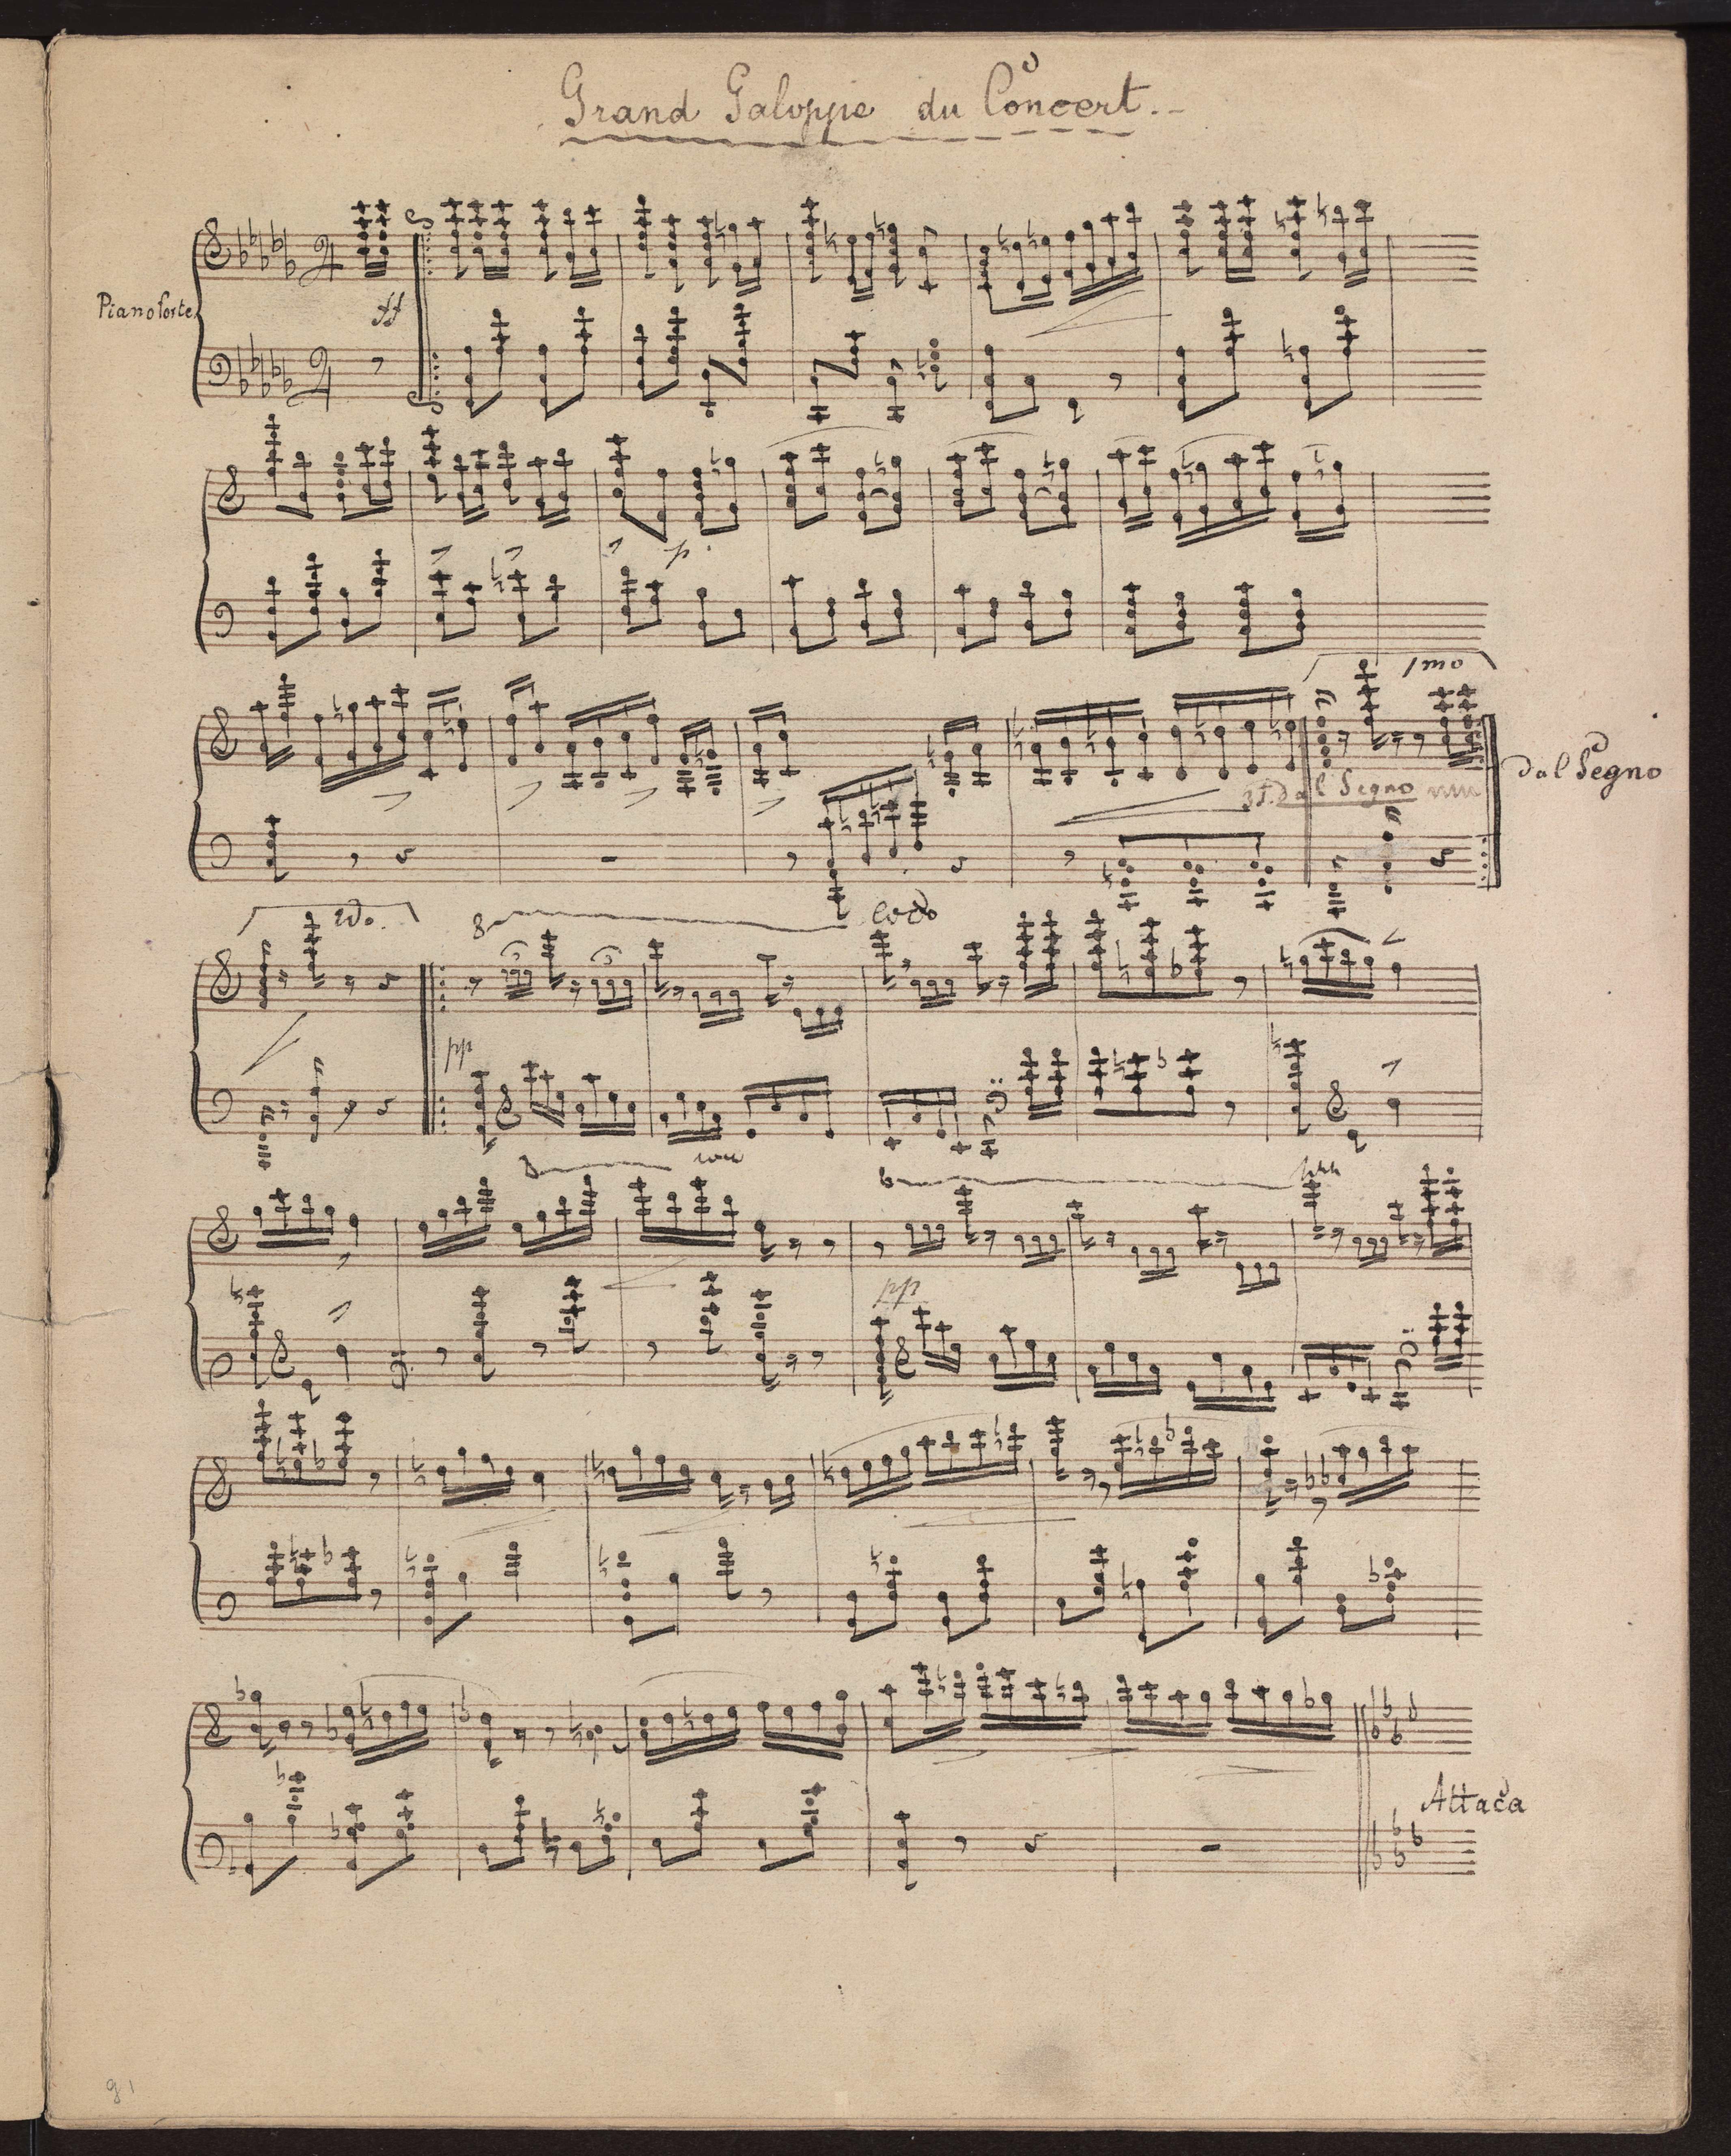 Grand Galoppe du Concert.
Pianoforte.
ff
p
1mo
dal Segno
dal Segno
2do.
8
loco
3
3
pp
8
loco
8
pp
Attaca
91